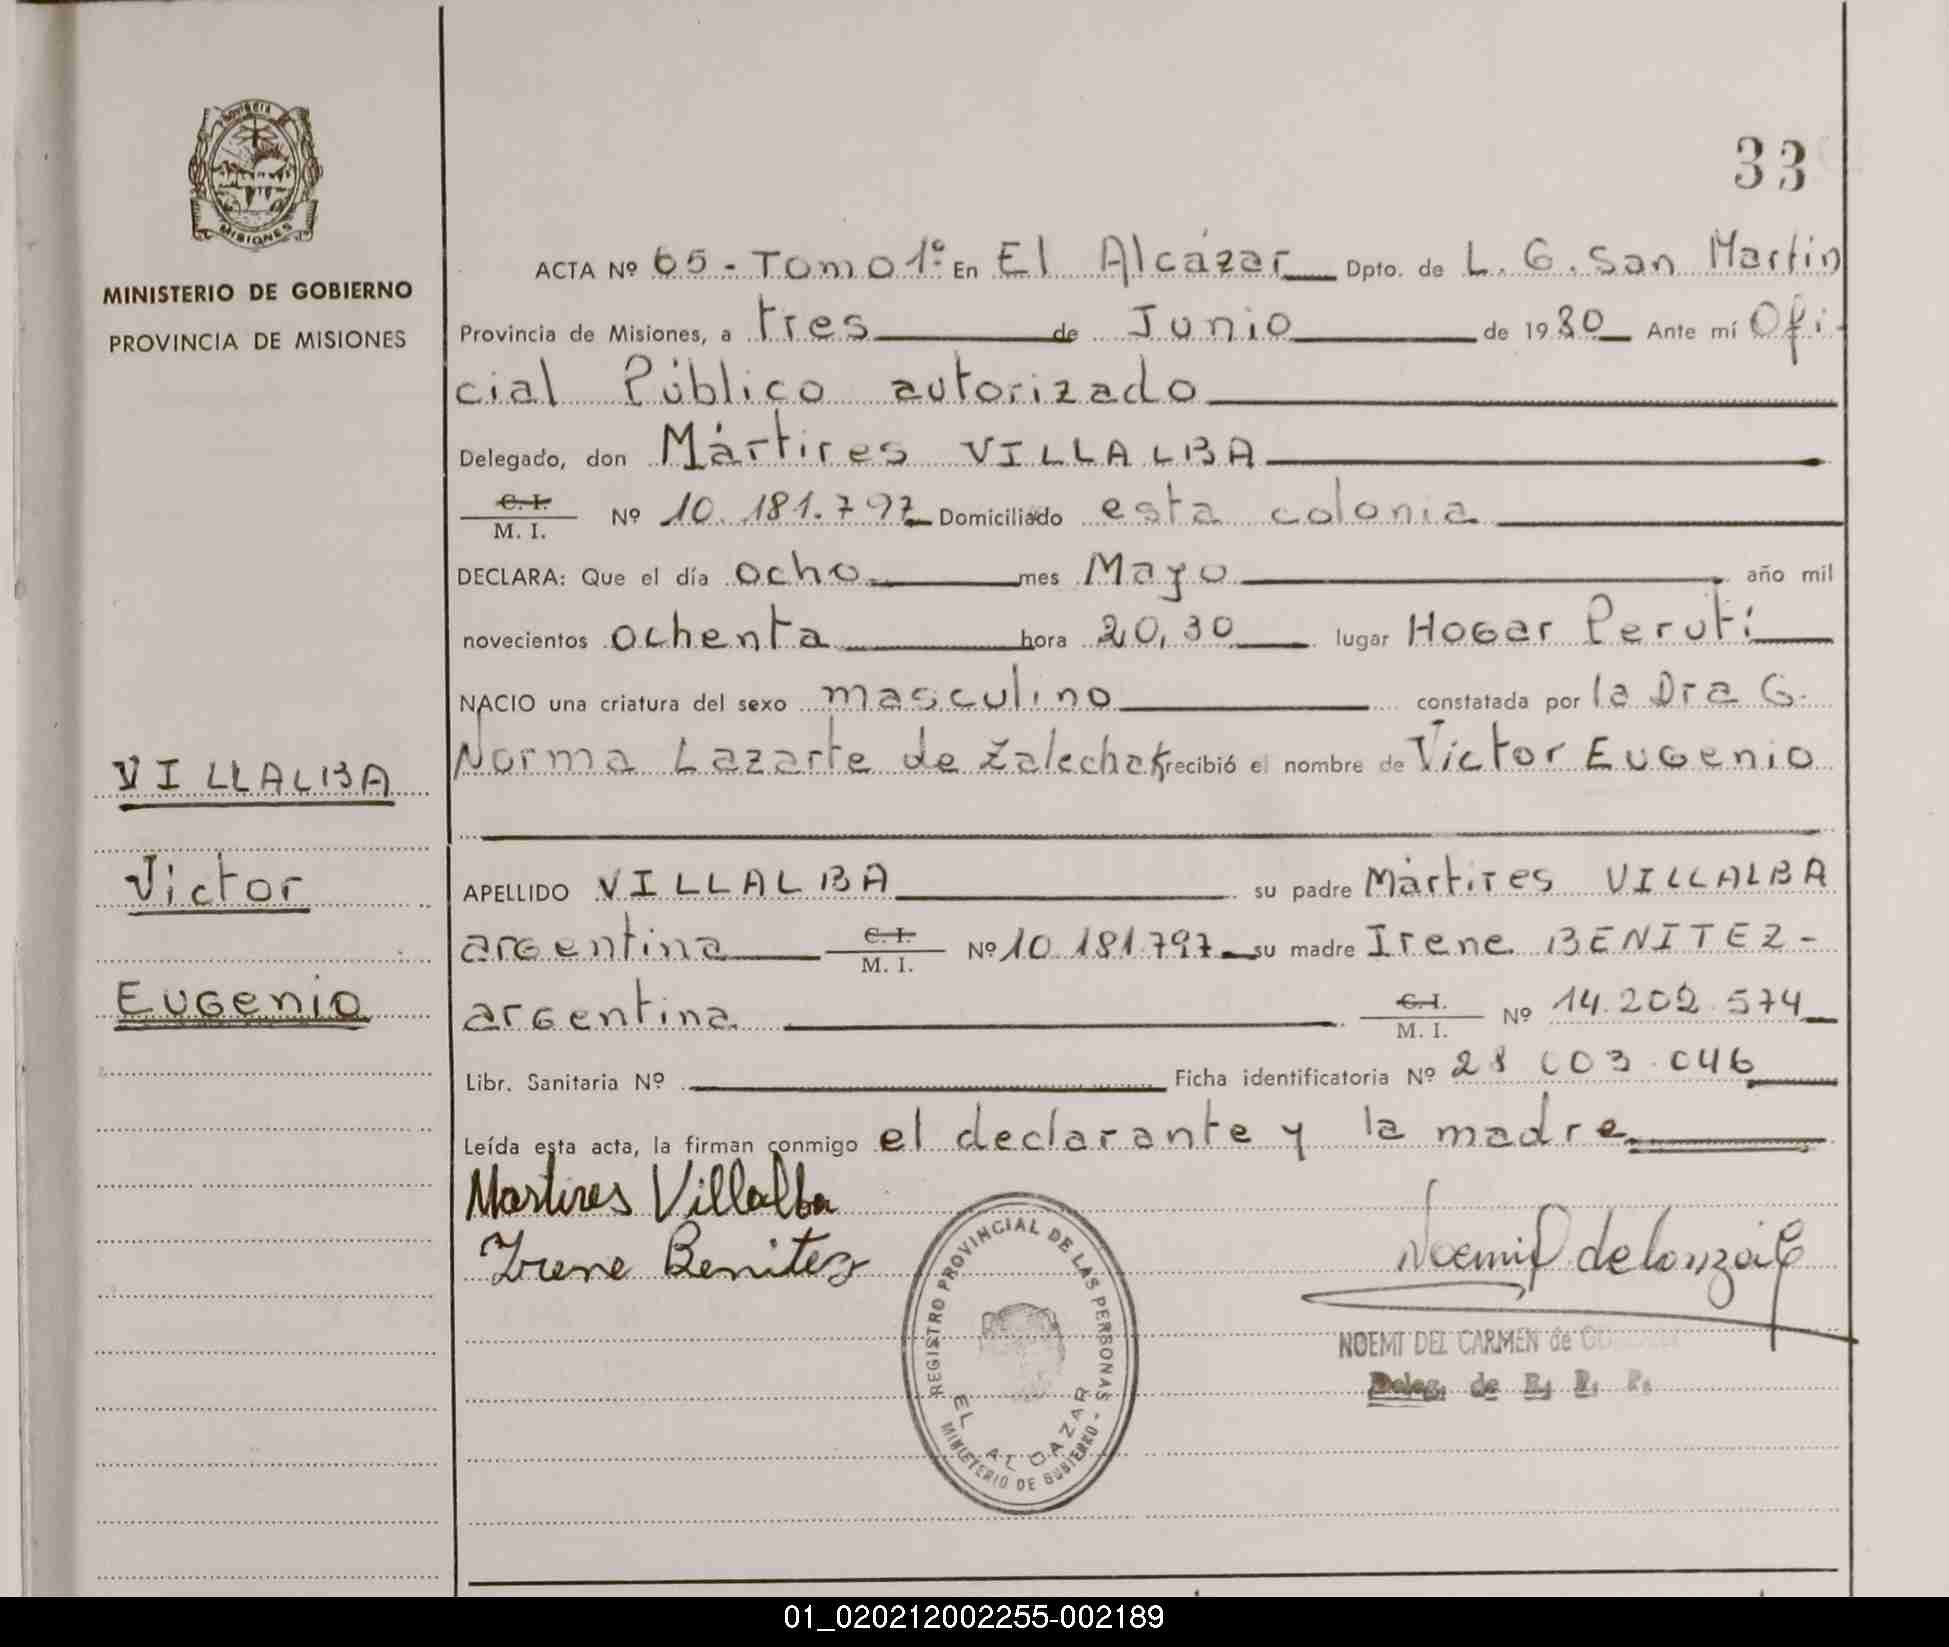 PROVINCIA
MISIONES
MINISTERIO DE GOBIERNO
PROVINCIA DE MISIONES
33
ACTA Nº 65 - Tomo 1º En El Alcázar Dpto. de L. G. San Martin
Provincia de Misiones, a tres de Junio de 1980 Ante mí Ofi-
cial Público autorizado
Delegado, don Mártires VILLALBA
C. I.
M. I. Nº 10.181.797 Domiciliado esta colonia
DECLARA: Que el día ocho mes Mayo año mil
novecientos ochenta hora 20,30 lugar Hogar Perutí
NACIO una criatura del sexo masculino constatada por la Dra G.
Norma Lazarte de Zalechak recibió el nombre de Victor Eugenio
VILLALBA
Victor
Eugenio
APELLIDO VILLALBA su padre Mártires VILLALBA
argentina C. I. M. I. Nº 10.181.797 su madre Irene BENITEZ -
argentina C. I. M. I. Nº 14.202.574
Libr. Sanitaria Nº Ficha identificatoria Nº 28 003.046
Leída esta acta, la firman conmigo el declarante y la madre
Martires Villalba
Irene Benitez
REGISTRO PROVINCIAL DE LAS PERSONAS
EL ALCAZAR
MINISTERIO DE GOBIERNO
NOEMI DEL CARMEN de
Deleg. de R. P. P.
01_020212002255-002189